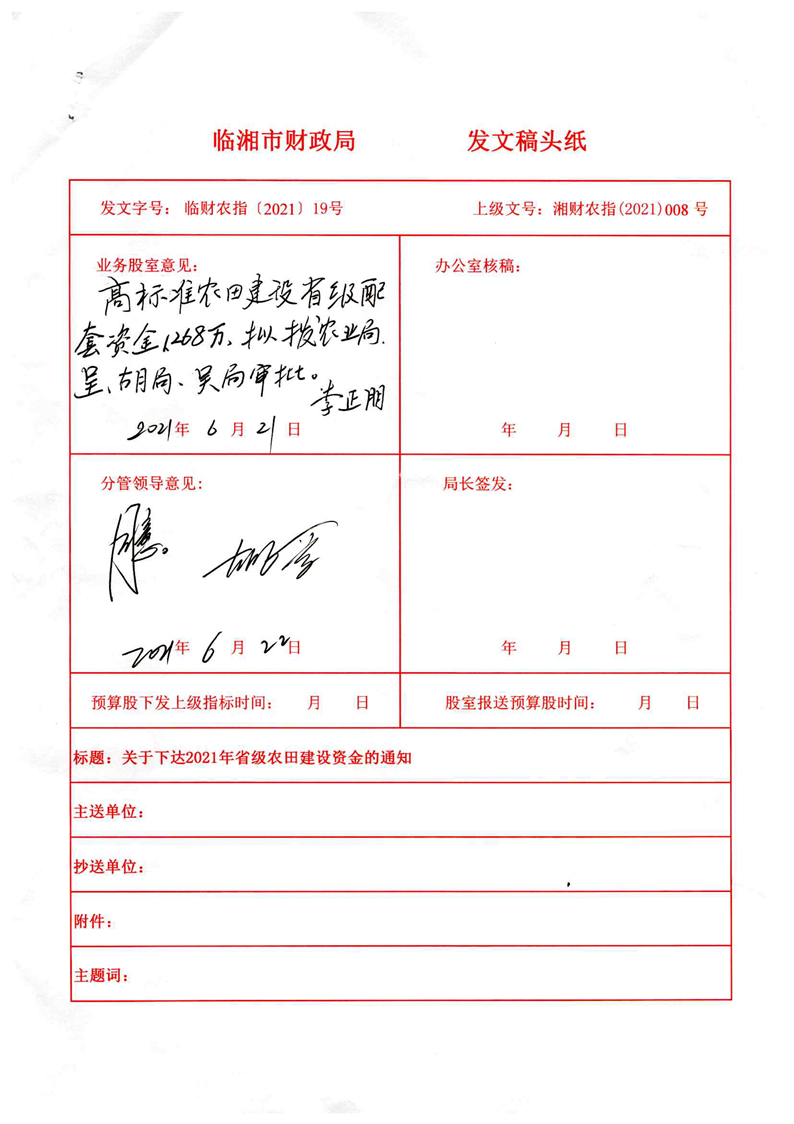 临湘市财政局 发文稿头纸
发文字号： 临财农指〔2021〕19号 上级文号：湘财农指(2021)008 号
业务股室意见：
高标准农田建设省级配
套资金1268万，拟拨农业局.
呈、胡局、吴局审批。
李正明
2021年 6 月 21 日
办公室核稿：
年 月 日
分管领导意见：
2021年 6 月 22日
局长签发：
年 月 日
预算股下发上级指标时间： 月 日
股室报送预算股时间： 月 日
标题：关于下达2021年省级农田建设资金的通知
主送单位：
抄送单位：
附件：
主题词：